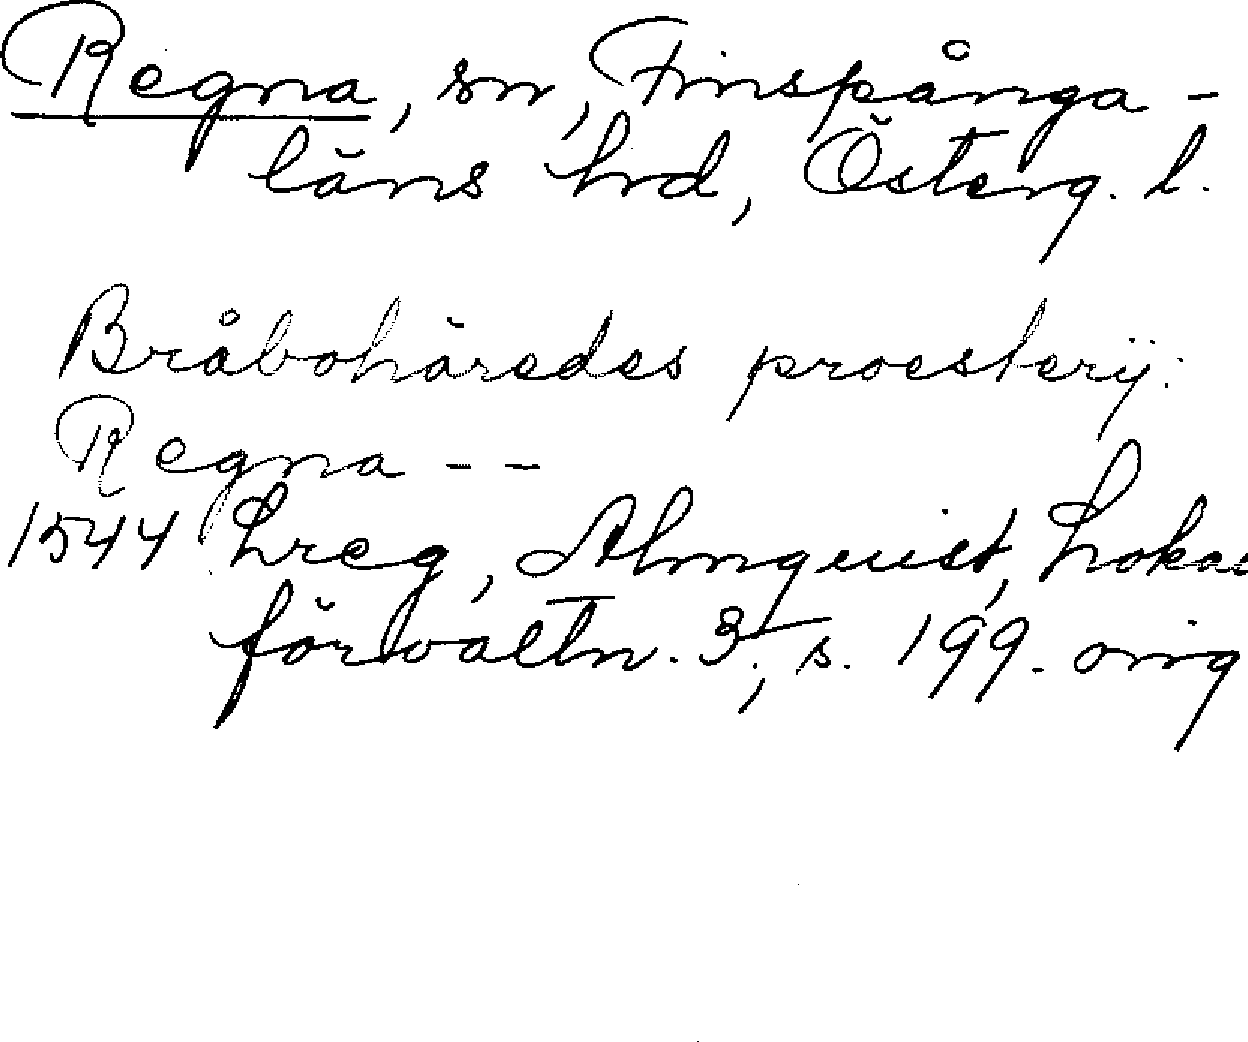 Regna, sn, Finspånga-
läns hrd, Österg. l.
Bråbohäredes proesterij:
Regna - -
1544 Lreg, Almquist, Lokal
förvaltn. 3:, s. 199. orig